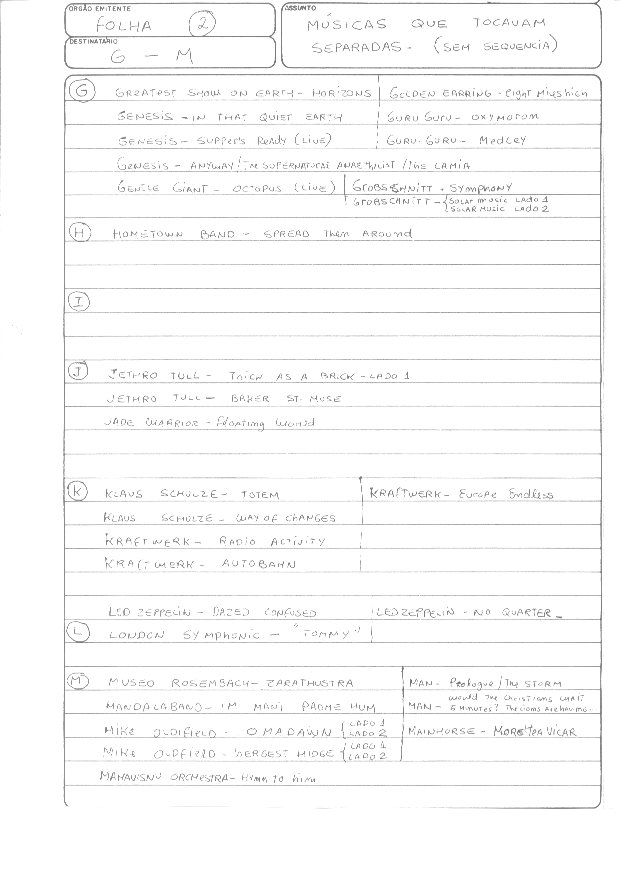 ÓRGÃO EMITENTE
FOLHA 2
DESTINATÁRIO
G - M
ASSUNTO
MÚSICAS QUE TOCAVAM
SEPARADAS - (SEM SEQUENCIA)
G GREATEST SHOW ON EARTH - HORIZONS GOLDEN EARRING - Eight Miles High
GENESIS - IN THAT QUIET EARTH GURU GURU - OXYMORUM
GENESIS - SUPPER'S READY (LIVE) GURU-GURU - Medley
GENESIS - ANYWAY / THE SUPERNATURAL ANAETHILIST / THE LAMIA
GENTLE GIANT - OCTOPUS (LIVE) GROBSCHNITT - SYMPHONY
GROBSCHNITT - SOLAR MUSIC LADO 1
SOLAR MUSIC LADO 2
H HOMETOWN BAND - SPREAD Them AROUND
I
J JETHRO TULL - THICK AS A BRICK - LADO 1
JETHRO TULL - BAKER ST. MUSE
JADE WARRIOR - Floating World
K KLAUS SCHULZE - TOTEM KRAFTWERK - Europe Endless
KLAUS SCHULZE - WAY OF CHANGES
KRAFTWERK - RADIO ACTIVITY
KRAFTWERK - AUTOBAHN
LED ZEPPELIN - DAZED CONFUSED LED ZEPPELIN - NO QUARTER
L LONDON SYMPHONIC - "TOMMY"
M MUSEO ROSEMBACH - ZARATHUSTRA MAN - Prologue / The STORM
MANDALABAND - IM MANI PADME HUM MAN - Would The Christians WAIT
5 minutes? The Lions Are having
MIKE OLDIFIELD - OMADAWN LADO 1 MAINHORSE - MORE TEA VICAR
LADO 2
MIKE OLDFIELD - HERGEST RIDGE LADO 1
LADO 2
MAHAVISNU ORCHESTRA - Hymn to him